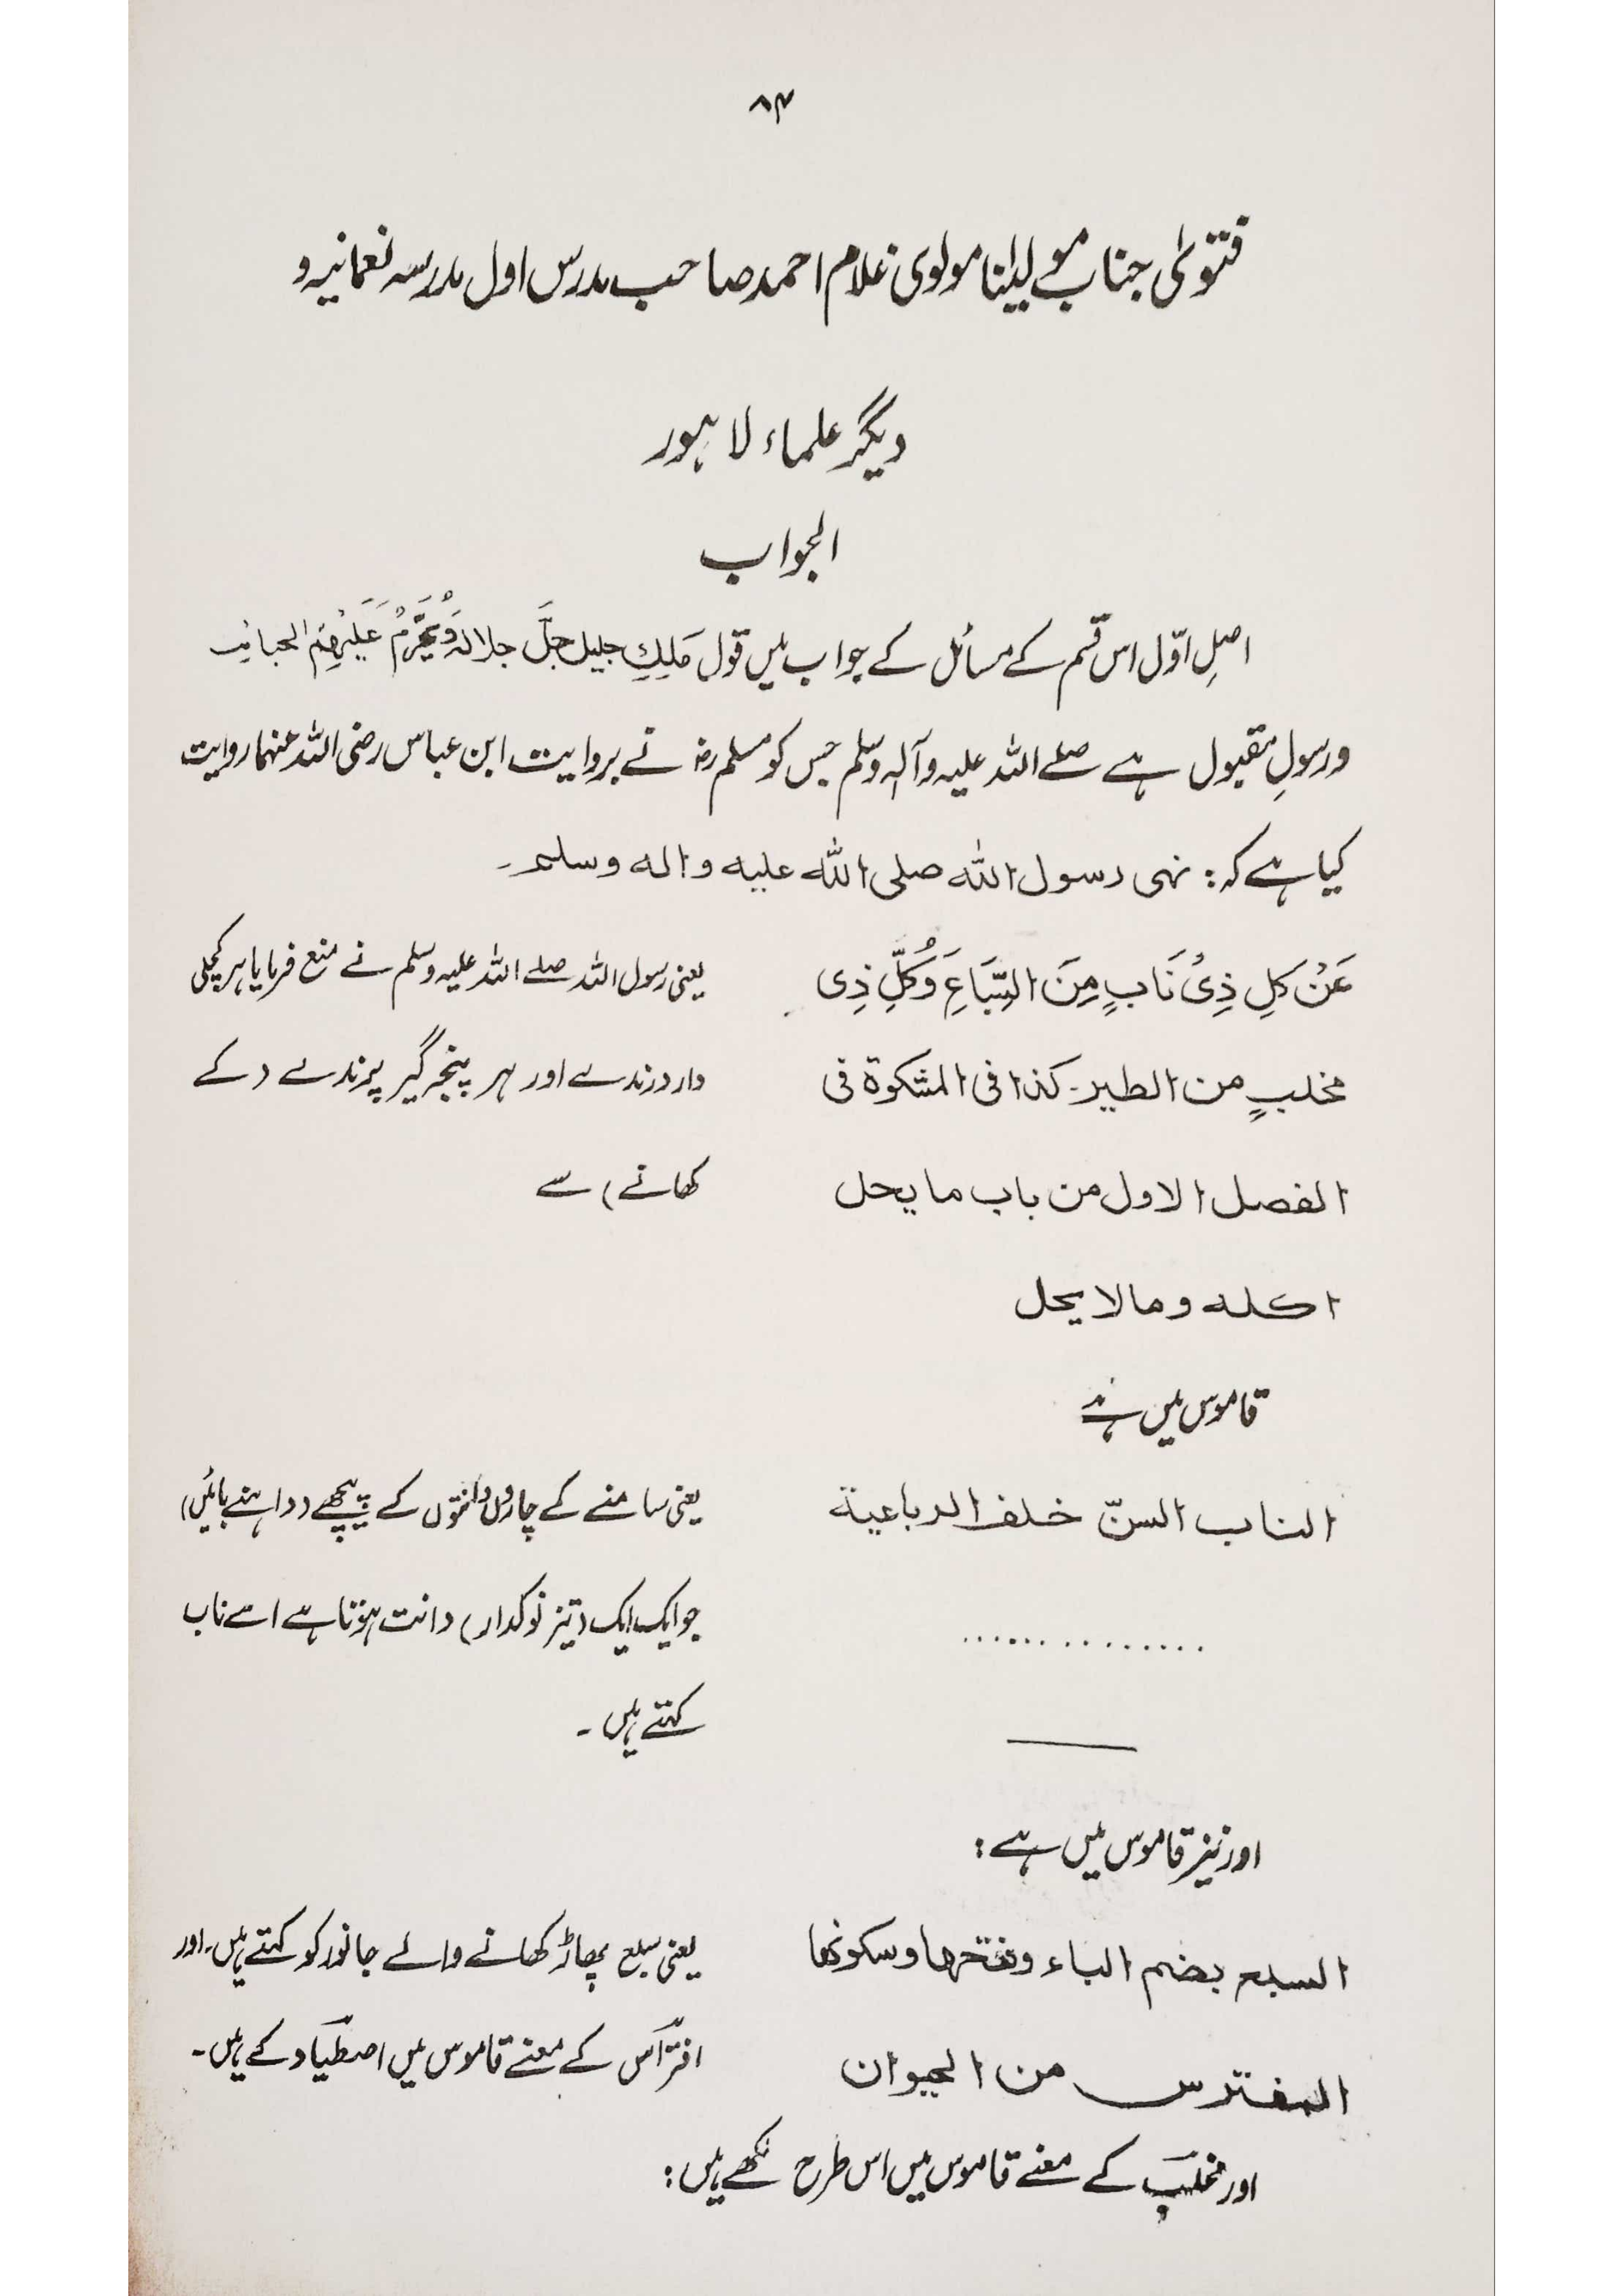 ۸۴
فتویٰ جناب مولینا مولوی غلام احمد صاحب مدرس اول مدرسہ نعمانیہ و
دیگر علماء لاہور
الجواب
اصلِ اوّل اس قسم کے مسائل کے جواب میں قول مَلِکِ جلیل جَلَّ جلالہٗ وَیُحَرِّمُ عَلَیْہِمُ الخبائث
ورسولِ مقبول ہے صلے اللہ علیہ وآلہٖ وسلم جس کو مسلم رضہ نے بروایت ابن عباس رضی اللہ عنہما روایت
کیا ہے کہ: نہی رسول اللہ صلی اللہ علیہ والہ وسلم۔
عَنْ کَلِ ذِیْ نَابٍ مِنَ السِّبَاعِ وَکُلِّ ذِی
مخلبٍ من الطیر۔ کذا فی المشکوۃ فی
الفصل الاول من باب ما یحل
اکلہ وما لا یحل
یعنی رسول اللہ صلے اللہ علیہ وسلم نے منع فرمایا ہر کچلی
دار درندے اور ہر پنجہ گیر پرندے (کے
کھانے) سے
قاموس میں ہے
الناب السنّ خلف الرباعیۃ
..............
یعنی سامنے کے چاروں دانتوں کے پیچھے (داہنے بائیں)
جو ایک ایک (تیز نوکدار) دانت ہوتا ہے اسے ناب
کہتے ہیں۔
اور نیز قاموس میں ہے:
السبع بضم الباء وفتحہا وسکونھا
المفترس من الحیوان
یعنی سبع پھاڑ کھانے والے جانور کو کہتے ہیں۔ اور
افتراس کے معنے قاموس میں اصطیاد کے ہیں۔
اور مخلب کے معنے قاموس میں اس طرح لکھے ہیں: